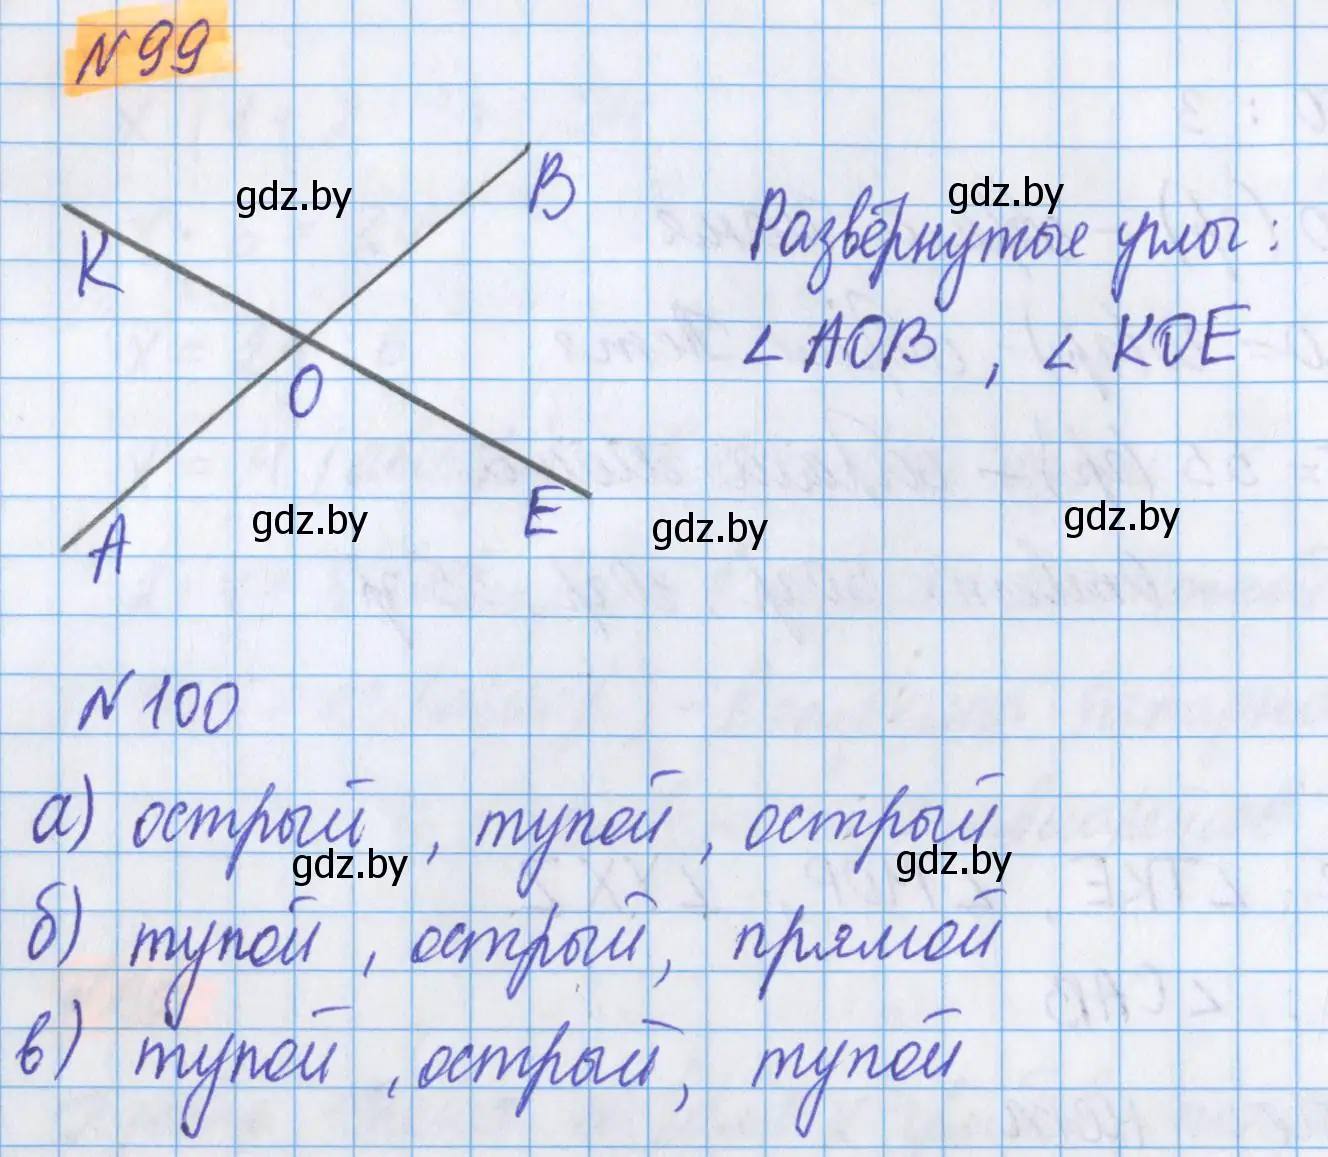 №99
B
gdz.by
gdz.by
K
Развёрнутые углы:
O
∠AOB, ∠KOE
A
E
gdz.by
gdz.by
gdz.by
№100
а) острый, тупой, острый
gdz.by
gdz.by
б) тупой, острый, прямой
в) тупой, острый, тупой